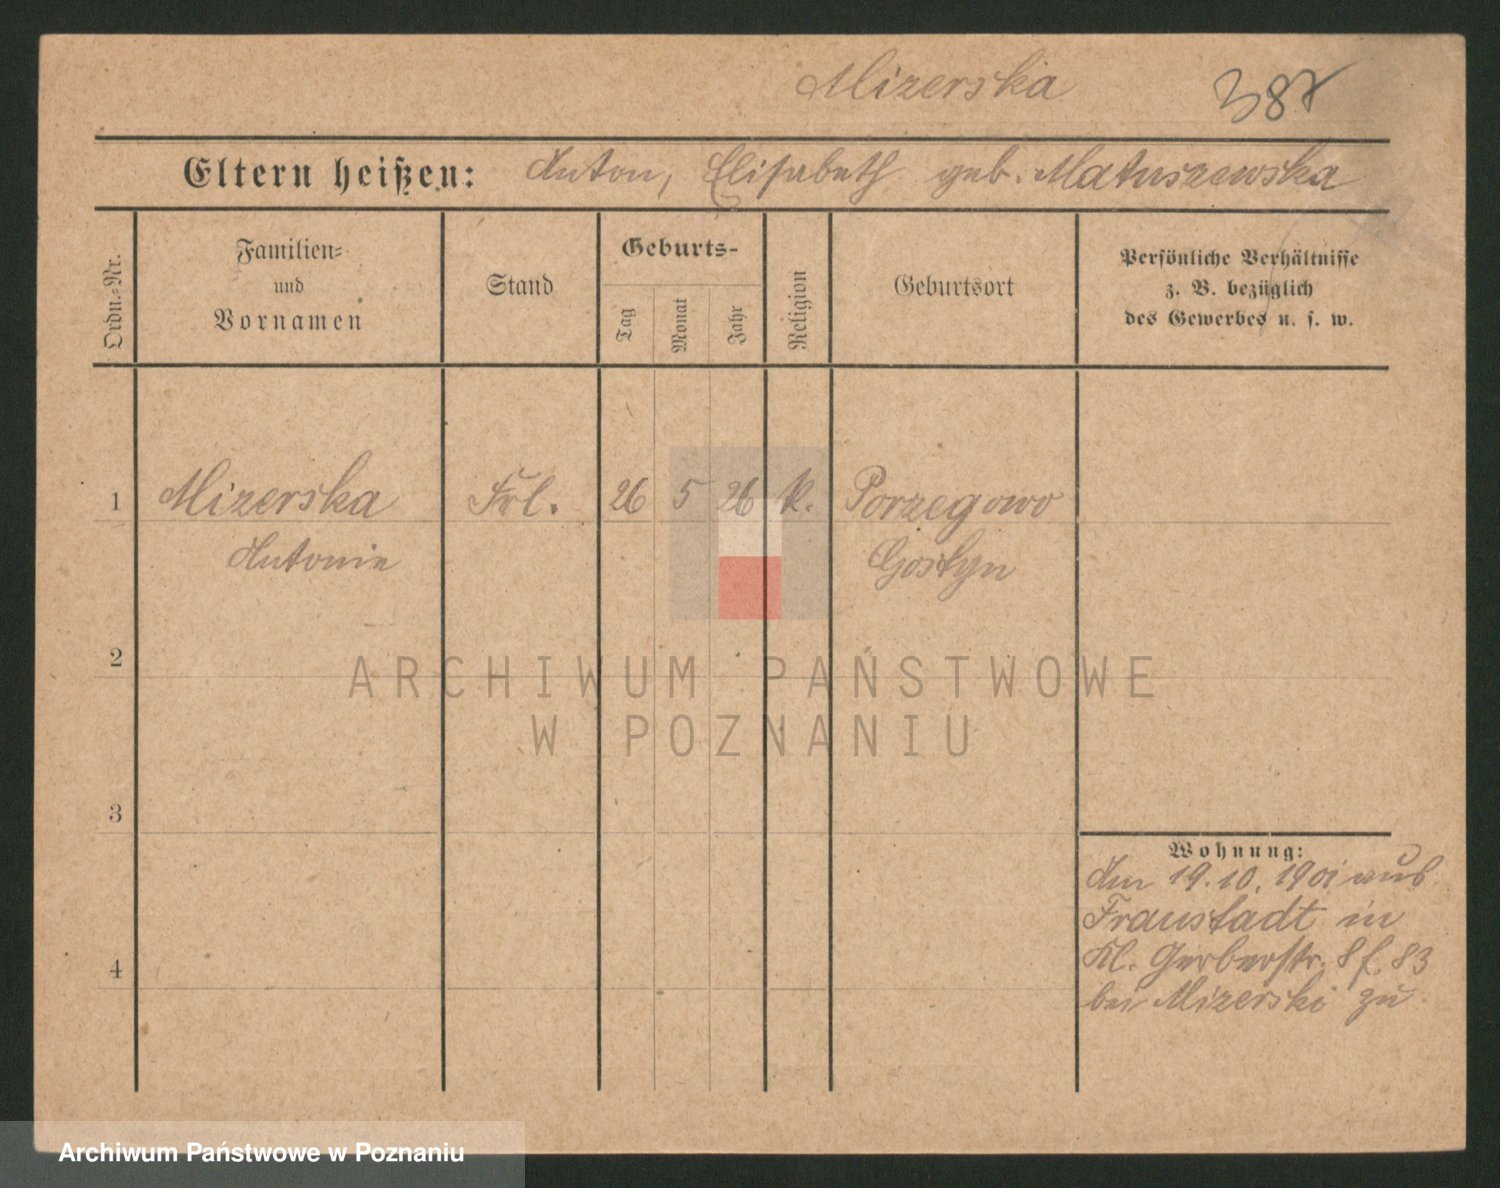 Mizerska 387
Eltern heißen: Anton, Elisabeth geb. Matuszewska
Ordn.-Nr.
Familien-
und
Vornamen
Stand
Geburts-
Tag
Monat
Jahr
Religion
Geburtsort
Persönliche Verhältnisse
z. B. bezüglich
des Gewerbes u. s. w.
1 Mizerska Frl. 26 5 26 k. Porzegowo
Antonie Gostyn
2
3
4
Wohnung:
Am 19.10.1901 aus
Fraustadt in
Kl. Gerberstr. 8 f. 83
bei Mizerski zu
ARCHIWUM PAŃSTWOWE
W POZNANIU
Archiwum Państwowe w Poznaniu